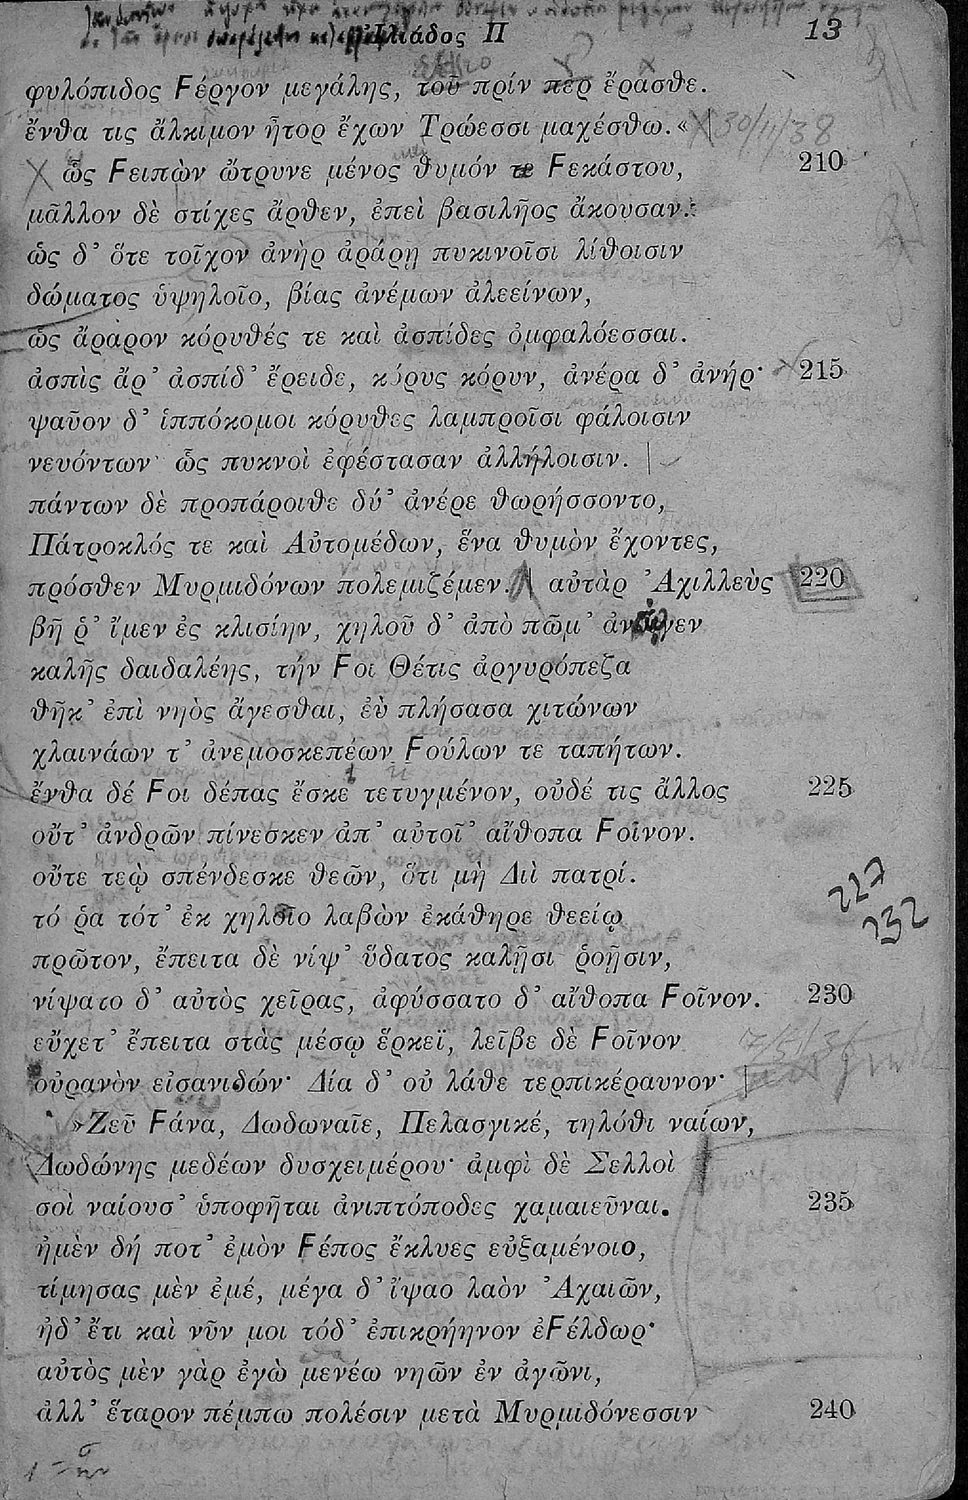 Ἰλιάδος Π 13
φυλόπιδος Ϝέργον μεγάλης, τοῦ πρίν περ ἔρασθε.
ἔνθα τις ἄλκιμον ἦτορ ἔχων Τρώεσσι μαχέσθω.« 30/11/38
ὣς Ϝειπὼν ὤτρυνε μένος θυμόν τε Ϝεκάστου, 210
μᾶλλον δὲ στίχες ἄρθεν, ἐπεὶ βασιλῆος ἄκουσαν.
ὡς δ' ὅτε τοῖχον ἀνὴρ ἀράρῃ πυκινοῖσι λίθοισιν
δώματος ὑψηλοῖο, βίας ἀνέμων ἀλεείνων,
ὣς ἄραρον κόρυθές τε καὶ ἀσπίδες ὀμφαλόεσσαι.
ἀσπὶς ἄρ' ἀσπίδ' ἔρειδε, κόρυς κόρυν, ἀνέρα δ' ἀνήρ· 215
ψαῦον δ' ἱππόκομοι κόρυθες λαμπροῖσι φάλοισιν
νευόντων· ὣς πυκνοὶ ἐφέστασαν ἀλλήλοισιν.
πάντων δὲ προπάροιθε δύ' ἀνέρε θωρήσσοντο,
Πάτροκλός τε καὶ Αὐτομέδων, ἕνα θυμὸν ἔχοντες,
πρόσθεν Μυρμιδόνων πολεμιζέμεν. αὐτὰρ Ἀχιλλεὺς 220
βῆ ῥ' ἴμεν ἐς κλισίην, χηλοῦ δ' ἀπὸ πῶμ'
καλῆς δαιδαλέης, τήν Ϝοι Θέτις ἀργυρόπεζα
θῆκ' ἐπὶ νηὸς ἄγεσθαι, ἐὺ πλήσασα χιτώνων
χλαινάων τ' ἀνεμοσκεπέων Ϝούλων τε ταπήτων.
ἔνθα δέ Ϝοι δέπας ἔσκε τετυγμένον, οὐδέ τις ἄλλος 225
οὔτ' ἀνδρῶν πίνεσκεν ἀπ' αὐτοῖ' αἴθοπα Ϝοῖνον.
οὔτε τεῳ σπένδεσκε θεῶν, ὅτι μὴ Διὶ πατρί.
227
τό ῥα τότ' ἐκ χηλοῖο λαβὼν ἐκάθηρε θεείῳ
232
πρῶτον, ἔπειτα δὲ νίψ' ὕδατος καλῇσι ῥοῇσιν,
νίψατο δ' αὐτὸς χεῖρας, ἀφύσσατο δ' αἴθοπα Ϝοῖνον. 230
εὔχετ' ἔπειτα στὰς μέσῳ ἕρκεϊ, λεῖβε δὲ Ϝοῖνον
οὐρανὸν εἰσανιδών· Δία δ' οὐ λάθε τερπικέραυνον·
»Ζεῦ Ϝάνα, Δωδωναῖε, Πελασγικέ, τηλόθι ναίων,
Δωδώνης μεδέων δυσχειμέρου· ἀμφὶ δὲ Σελλοὶ
σοὶ ναίουσ' ὑποφῆται ἀνιπτόποδες χαμαιεῦναι. 235
ἠμὲν δή ποτ' ἐμὸν Ϝέπος ἔκλυες εὐξαμένοιο,
τίμησας μὲν ἐμέ, μέγα δ' ἴψαο λαὸν Ἀχαιῶν,
ἠδ' ἔτι καὶ νῦν μοι τόδ' ἐπικρήηνον ἐϜέλδωρ·
αὐτὸς μὲν γὰρ ἐγὼ μενέω νηῶν ἐν ἀγῶνι,
ἀλλ' ἕταρον πέμπω πολέσιν μετὰ Μυρμιδόνεσσιν 240